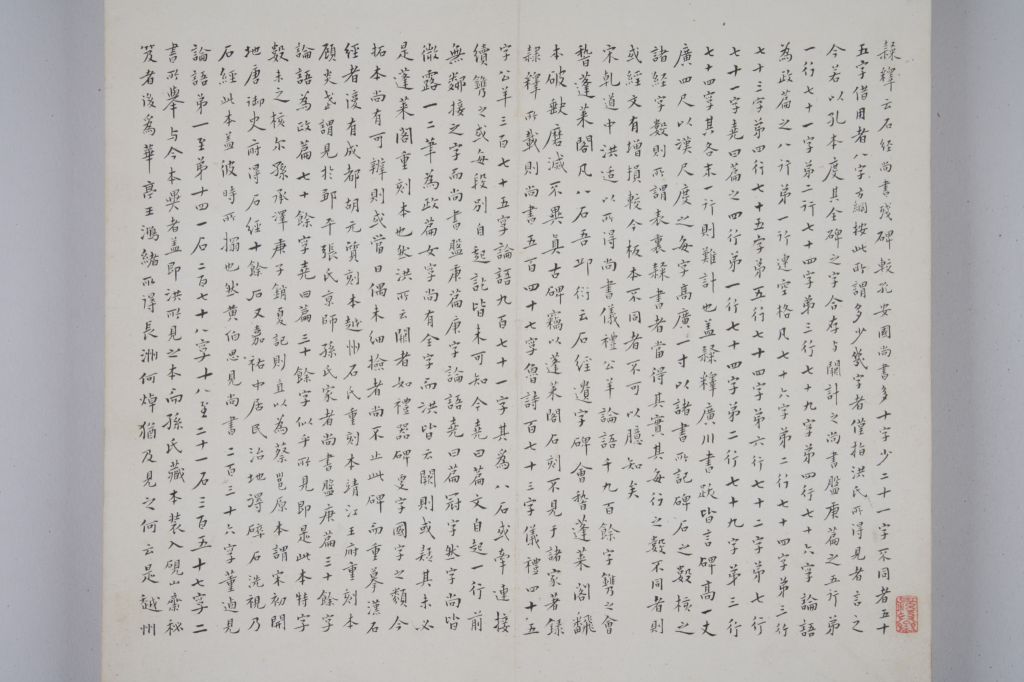 隸釋云石經尚書殘碑較孔安國尚書多十字少二十一字不同者五十
五字借用者八字方綱按此所謂多少幾字者僅指洪氏所得見者言之
今若以孔本度其全碑之字合存与闕計之尚書盤庚篇之五行第
一行七十一字第二行七十四字第三行七十九字第四行七十六字論語
為政篇之八行第一行連空格凡七十六字第二行七十四字第三行
七十三字第四行七十五字第五行七十四字第六行七十二字第七行
七十一字堯曰篇之四行第一行七十四字第二行七十九字第三行
七十四字其各末一行則難計也蓋隸釋廣川書跋皆言碑高一丈
廣四尺以漢尺度之每字高廣一寸以諸書所記碑石之數核之
諸經字數則所謂表裏隸書者當得其實其每行之數不同者則
或經文有增損較今板本不同者不可以臆知矣
宋乹道中洪适以所得尚書儀禮公羊論語千九百餘字鐫之會
稽蓬萊閣凡八石吾邱衍云石經遺字碑會稽蓬萊閣翻
本破缺磨滅不異真古碑竊以蓬萊閣石刻不見于諸家著錄
隸釋所載則尚書五百四十七字魯詩百七十三字儀禮四十五
字公羊三百七十五字論語九百七十一字其為八石或牽連接
續鐫之或每段別自起訖皆未可知今堯曰篇文自起一行前
無鄰接之字而尚書盤庚篇庚字論語堯曰篇冠字然字尚皆
微露一二筆為政篇女字尚有全字而洪皆云闕則或疑其未必
是蓬萊閣重刻本也然洪所云闕者如禮器碑叟字國字之類今
拓本尚有可辨則或當日偶未細撿者尚不止此碑而重摹漢石
經者後有成都胡元質刻本越州石氏重刻本靖江王府重刻本
顧炎武謂見於鄒平張氏京師孫氏家者尚書盤庚篇三十餘字
論語為政篇七十餘字堯曰篇三十餘字似乎所見即是此本特字
數未之核尔孫承澤庚子銷夏記則直以為蔡邕原本謂宋初開
地唐御史府得石經十餘石又嘉祐中居民治地得碎石洗視乃
石經此本蓋彼時所搨也然黃伯思見尚書二百三十六字董逌見
論語第一至第十四一石二百七十八字十八至二十一石三百五十七字二
書所舉与今本異者蓋即洪所見之本而孫氏藏本裝入硯山齋秘
笈者後為華亭王鴻緒所得長洲何焯猶及見之何云是越州